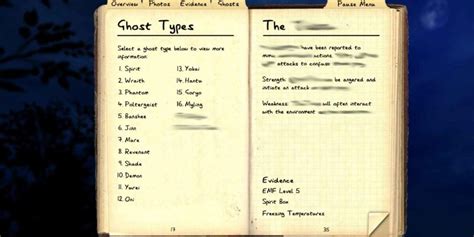 Overview
Photos
Evidence
Ghosts
Pause Menu
Ghost Types
Select a ghost type below to view more
information:
1. Spirit
2. Wraith
3. Phantom
4. Poltergeist
5. Banshee
6. Jinn
7. Mare
8. Revenant
9. Shade
10. Demon
11. Yurei
12. Oni
13. Yokai
14. Hantu
15. Goryo
16. Myling
17
The
have been reported to
actions
attacks to confuse
Strength
be angered and
initiate an attack
Weakness
will often interact
with the environment
Evidence
EMF Level 5
Spirit Box
Freezing Temperatures